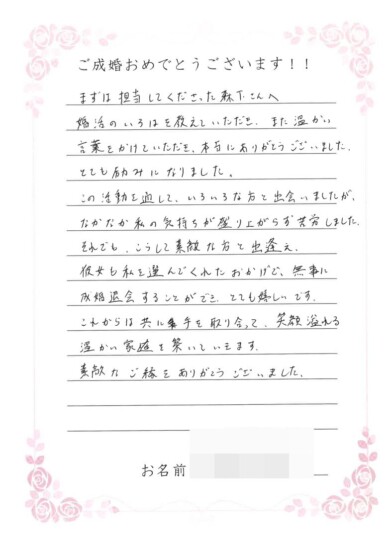 ご成婚おめでとうございます！！
まずは担当してくださった森下さんへ
婚活のいろはを教えていただき、また温かい
言葉をかけていただき、本当にありがとうございました。
とても励みになりました。
この活動を通して、いろいろな方と出会いましたが、
なかなか私の気持ちが盛り上がらず苦労しました。
それでも、こうして素敵な方と出逢え、
彼女も私を選んでくれたおかげで、無事に
成婚退会することができ、とても嬉しいです。
これからは共に手を取り合って、笑顔溢れる
温かい家庭を築いていきます。
素敵なご縁をありがとうございました。
お名前